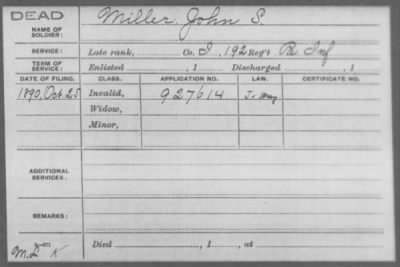 DEAD
NAME OF SOLDIER: Miller John S.
SERVICE: Late rank, Co. I, 192 Reg't Pa Inf
TERM OF SERVICE: Enlisted , 1 Discharged , 1
DATE OF FILING. CLASS. APPLICATION NO. LAW. CERTIFICATE NO.
1890, Oct 25 Invalid, 927614
Widow,
Minor,
ADDITIONAL SERVICES:
REMARKS:
Died , 1 , at